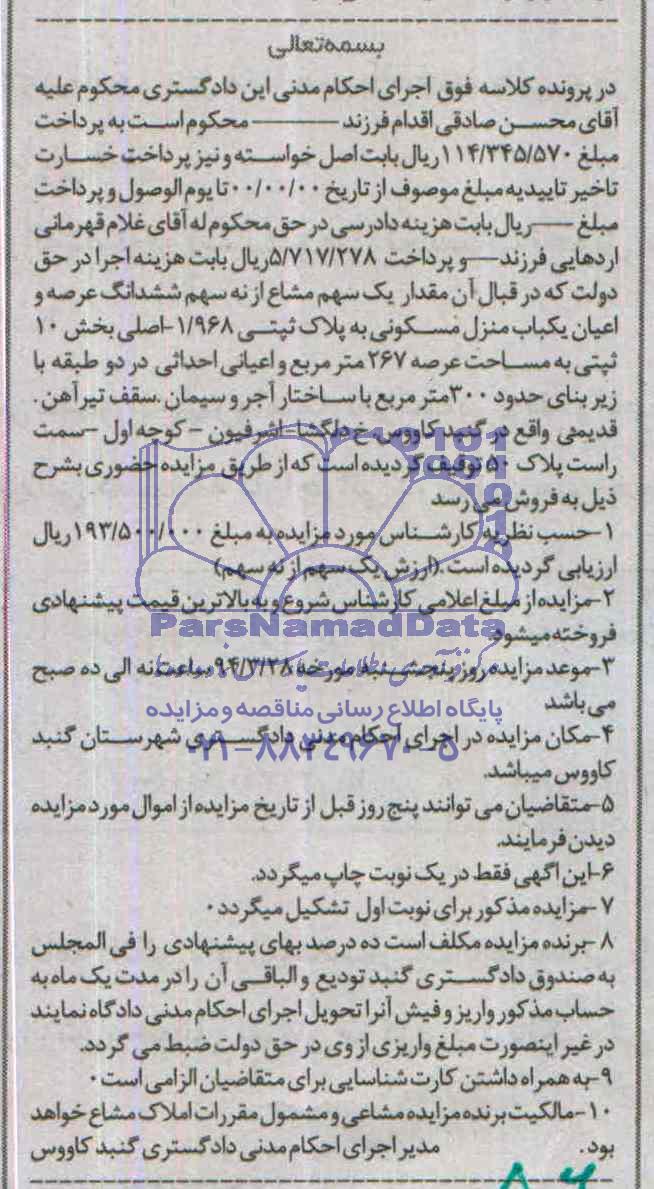 بسمه‌تعالی
در پرونده کلاسه فوق اجرای احکام مدنی این دادگستری محکوم علیه
آقای محسن صادقی اقدام فرزند ——— محکوم است به پرداخت
مبلغ ۱۱۴/۳۴۵/۵۷۰ ریال بابت اصل خواسته و نیز پرداخت خسارت
تاخیر تاییدیه مبلغ موصوف از تاریخ ۰۰/۰۰/۰۰ تا یوم الوصول و پرداخت
مبلغ —— ریال بابت هزینه دادرسی در حق محکوم له آقای غلام قهرمانی
اردهایی فرزند —— و پرداخت ۵/۷۱۷/۲۷۸ریال بابت هزینه اجرا در حق
دولت که در قبال آن مقدار یک سهم مشاع از نه سهم ششدانگ عرصه و
اعیان یکباب منزل مسکونی به پلاک ثبتی ۱/۹۶۸-اصلی بخش ۱۰
ثبتی به مساحت عرصه ۲۶۷ متر مربع و اعیانی احداثی در دو طبقه با
زیر بنای حدود ۳۰۰متر مربع با ساختار آجر و سیمان .سقف تیرآهن .
قدیمی واقع در گنبد کاووس خ دلگشا- اشرفیون - کوچه اول -سمت
راست پلاک ۵۰ توقیف گردیده است که از طریق مزایده حضوری بشرح
ذیل به فروش می رسد
۱-حسب نظریه کارشناس مورد مزایده به مبلغ ۱۹۳/۵۰۰/۰۰۰ ریال
ارزیابی گردیده است .(ارزش یک سهم از نه سهم)
۲-مزایده از مبلغ اعلامی کارشناس شروع و به بالاترین قیمت پیشنهادی
فروخته میشود.
ParsNamadData
۳-موعد مزایده روز پنجشنبه مورخه ۹۴/۳/۲۸ ساعت نه الی ده صبح
می باشد
پایگاه اطلاع رسانی مناقصه و مزایده
۴-مکان مزایده در اجرای احکام مدنی دادگستری شهرستان گنبد
۰۲۱-۸۸۳۴۹۶۷۰-۵
کاووس میباشد.
۵-متقاضیان می توانند پنج روز قبل از تاریخ مزایده از اموال مورد مزایده
دیدن فرمایند.
۶-این اگهی فقط در یک نوبت چاپ میگردد.
۷-مزایده مذکور برای نوبت اول تشکیل میگردد۰
۸-برنده مزایده مکلف است ده درصد بهای پیشنهادی را فی المجلس
به صندوق دادگستری گنبد تودیع و الباقی آن را در مدت یک ماه به
حساب مذکور واریز و فیش آنرا تحویل اجرای احکام مدنی دادگاه نمایند
در غیر اینصورت مبلغ واریزی از وی در حق دولت ضبط می گردد.
۹-به همراه داشتن کارت شناسایی برای متقاضیان الزامی است۰
۱۰-مالکیت برنده مزایده مشاعی و مشمول مقررات املاک مشاع خواهد
بود. مدیر اجرای احکام مدنی دادگستری گنبد کاووس